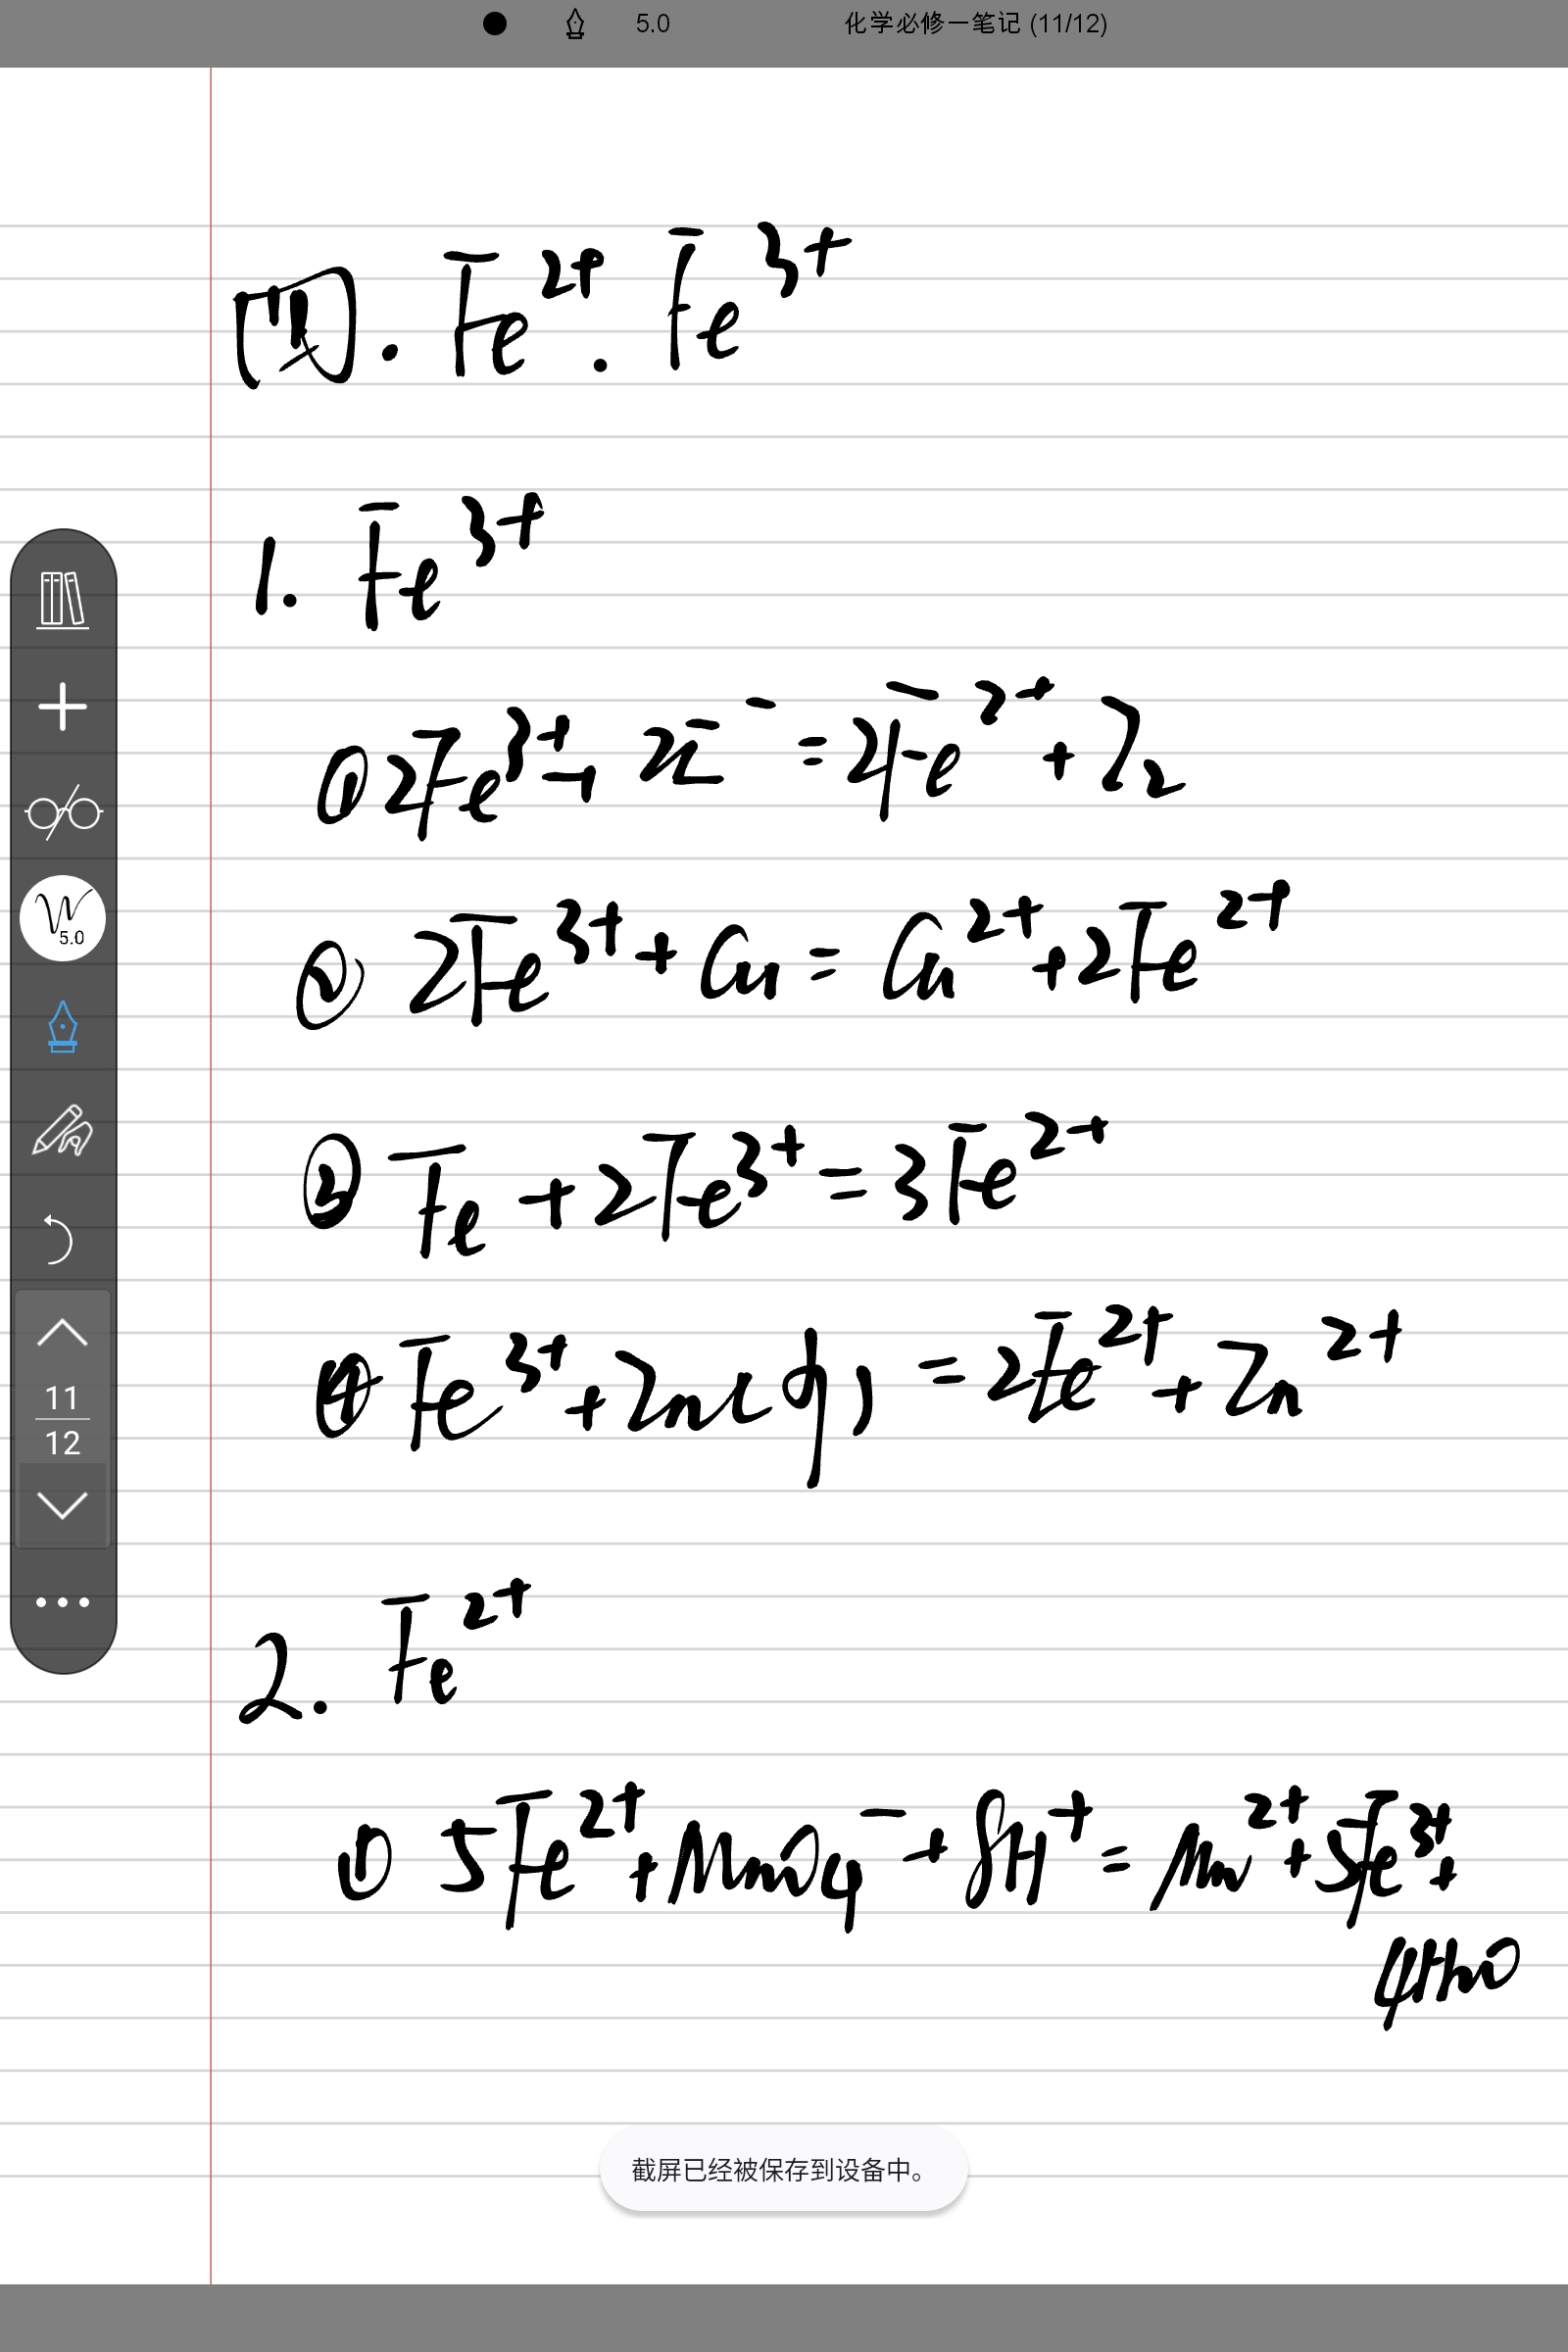 5.0 化学必修一笔记 (11/12)
四. Fe²⁺. Fe³⁺
1. Fe³⁺
① 2Fe³⁺ + 2I⁻ = 2Fe²⁺ + I₂
② 2Fe³⁺ + Cu = Cu²⁺ + 2Fe²⁺
③ Fe + 2Fe³⁺ = 3Fe²⁺
④ Fe³⁺ + Zn(少) = 2Fe²⁺ + Zn²⁺
2. Fe²⁺
① 5Fe²⁺ + MnO₄⁻ + 8H⁺ = Mn²⁺ + 5Fe³⁺ +
4H₂O
5.0
11
12
截屏已经被保存到设备中。